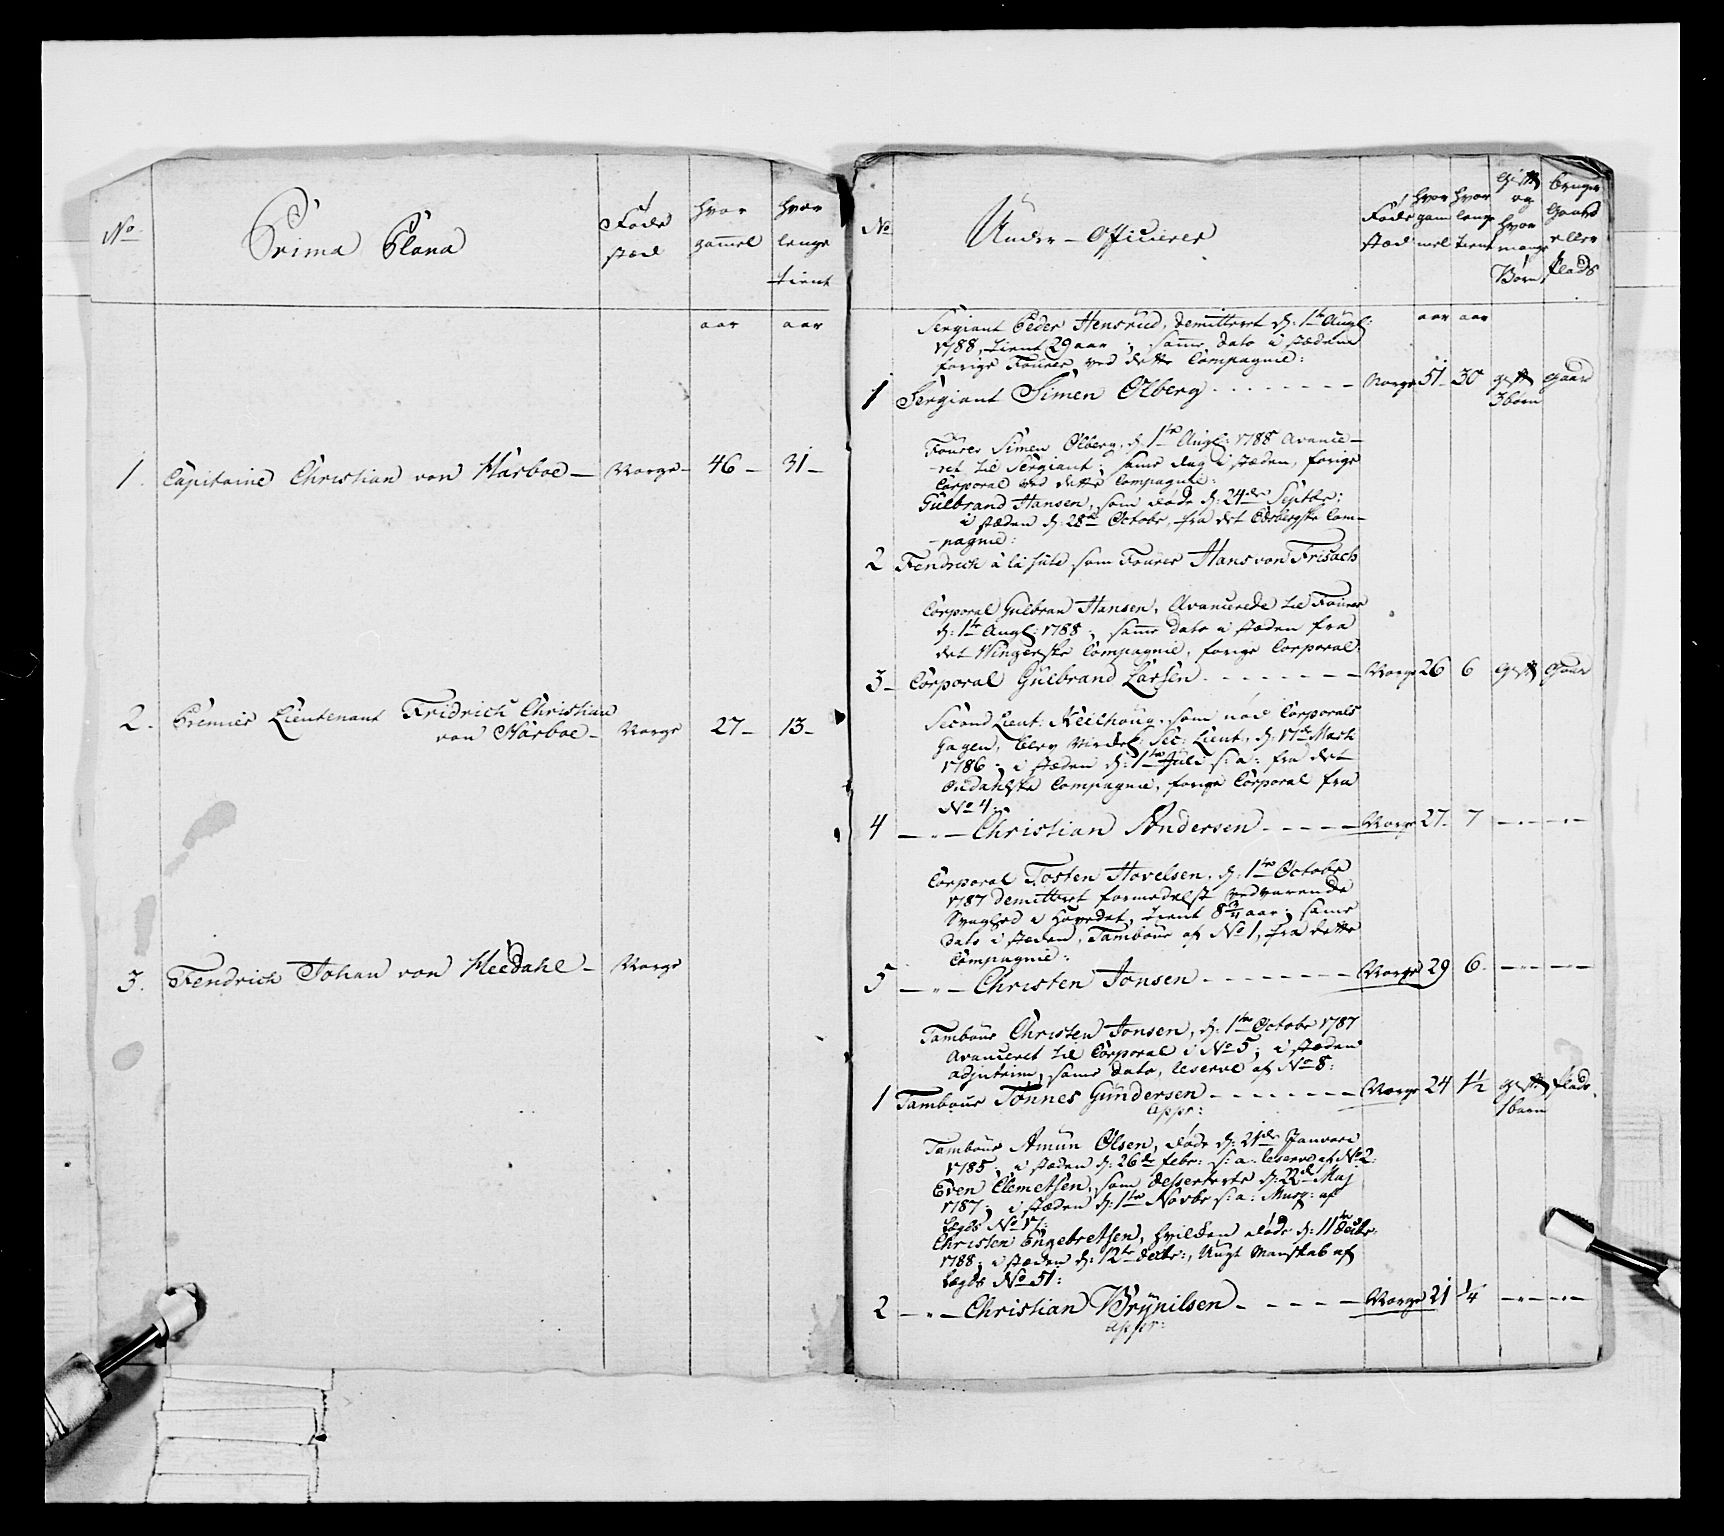 No
Prima Plana
Føde
stæd
hvor
gammel
hvor
lenge
tient
aar aar
1. Capitaine Christian von Harboe – Norge – 46 – 31 –
2. Premier Lieutenant Fridrich Christian
von Harboe – Norge 27 – 13 –
3. Fendrich Johan von – Norge
No
Under-Officierer
Føde
stæd
hvor
gam
mel
hvor
lenge
tient
Gift
og
hvor
mange
Børn
bruger
Gaard
eller
Plads
aar aar
Sergiant Peder Hensrud, demitteret d: 1te Augl:
1788, tient 29 aar ; samme dato i stæden
forige Fourer ved dette Compagnie:
1 Sergiant Simen Olberg - - - - - Norge 51 – 30 gift Gaard
3 børn
Fourer Simen Olberg, d: 1te Augl: 1788 Avance-
-ret til Sergiant ; same dag i stæden, forige
Corporal ved dette Compagnie:
Gulbrand Hansen, som døde d: 24de Septbr:
i stæden d: 28de Octobr, fra det Compagnie:
-pagnie:
2 Fendrich a la suite som Fourer Hans von Frisach
Corporal Gulbran Hansen, Avancerede til Fourer
d: 1te Augl: 1788 ; same dato i stæden fra
det Wingerske Compagnie, forige Corporal
3 – Corporal Gulbrand Larsen - - - - - Norge 26 6 Gift Gaar
Second Lieut: Neilhoug, som nød Corporals
Gagen, blev Virkel: Sec: Lieut, d: 17de Marti
1786 ; i stæden d: 1te Juli s: a: fra det
Oudahlske Compagnie, forige Corporal fra
No 4:
4 – " – Christian Andersen - - - - - Norge 27 – 7 – " – " –
Corporal Tosten Hovelsen, d: 1te Octobr
1787 demitteret formedelst vedvarende
Svaghed i Hovedet, tient 8 3/4 aar ; same
dato i stæden, Tambour af No 1, fra dette
Compagnie:
5 – " – Christen Jonsen - - - - - Norge 29 6 – " – " –
Tambour Christen Jonsen, d: 1te Octobr 1787
Avanceret til Corporal i No 5 ; i stæden
same dato, reserve af No 8:
1 Tambour Tønnes Gundersen - - - - - Norge 24 1 1/2 gift Plads.
appr: 1 barn
Tambour Amun Olsen, døde d: 21de Januari
1785 ; i stæden d: 26de febr: s: a: reserve af No 2:
Even Clemetsen, som desserterte d: 22de Maj
1787 ; i stæden d: 1te Novbr s: a: Murg: af
Legds No 17:
Christen Engebretsen, hvilken døde d: 11te Decbr:
1788 ; i stæden d: 12te decbr:, Ungt Manskab af
Legds No 51:
2 – " – Christian Brynilsen - - - - Norge 21 1/4 – " – " –
appr: